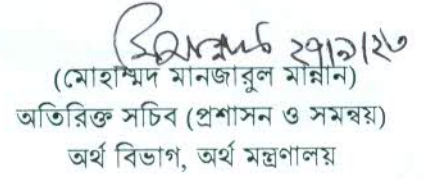 ২৭/৯/২৩
(মোহাম্মদ মানজারুল মান্নান)
অতিরিক্ত সচিব (প্রশাসন ও সমন্বয়)
অর্থ বিভাগ, অর্থ মন্ত্রণালয়